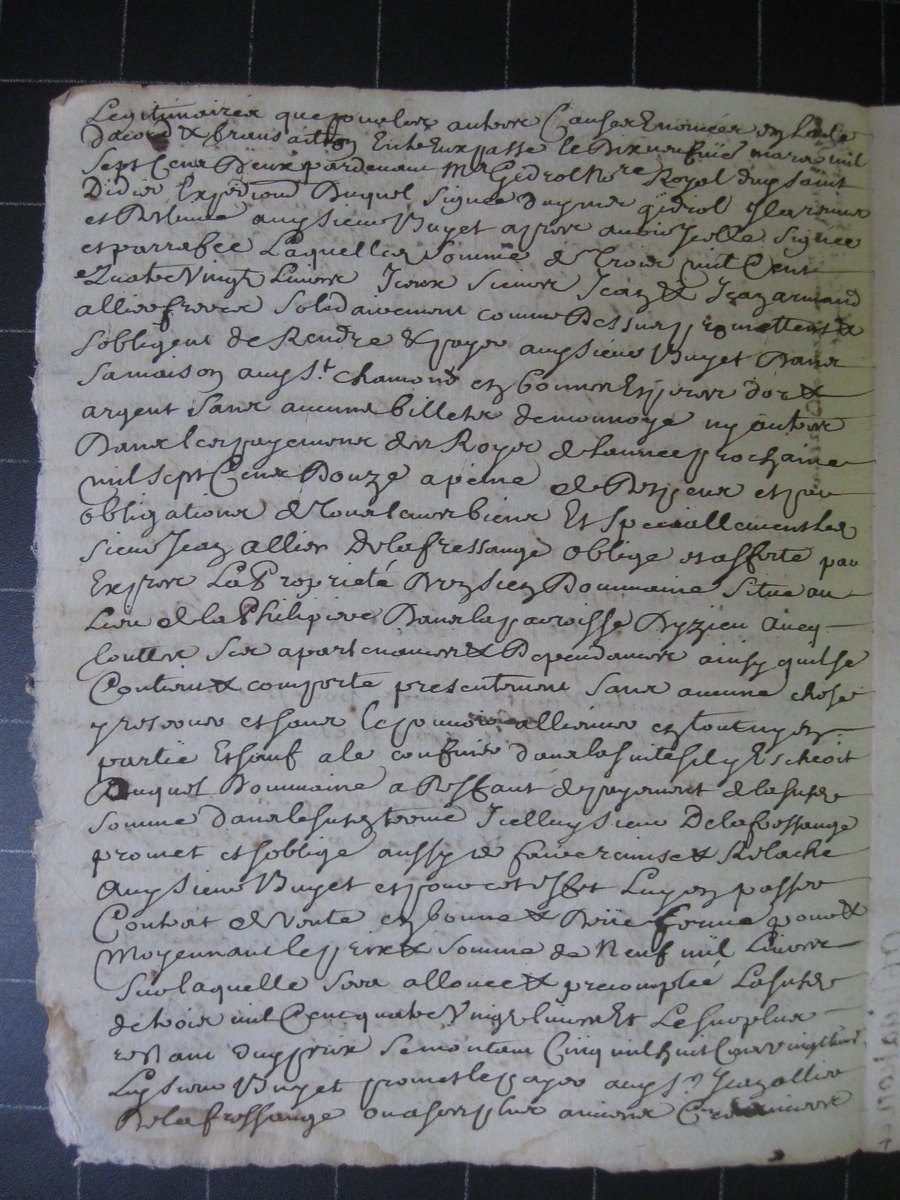 Legitimaires que pour les autres Causes Enoncées En lacte
Dacord & transaction Entr Eux passé le Dix neufvie mars mil
Sept Cens Deux pardevant Me Gidrol Nore Royal duy Saint
Didier Expedition Duquel Signée duy me Gidrol
et Retenue auy sieur Buyet apres avoir Icelle Signée
et parraffée Laquelle Somme de Trois mil Cent
Quatre Vingt Livres Iceux Sieurs Jean & Jean armand
allier freres Solidairement comme Dessus promettent &
Sobligent de Rendre & payer auy sieur Buyet Dans
Sa maison auy St. Chamond en bonnes Especes dor &
argent Sans aucuns billets de monnoye ny autres
Dans les payements des Roys de Lannée prochaine
mil sept Cens Douze a peine de Despens et par
obligations de Tous leurs biens Et Speciallement led
sieur Jean allier Delafressange oblige et affecte par
Expres La Proprieté Du sien Dommaine Situé au
Lieu de la Philipiere Dans la parroisse Dyzieu avecq
touttes ses apartenances & Dependances ainsy quil se
Contient & comporte presentement sans aucune chose
y reserver et sans le pouvoir allienner en tout ny en
partie Et sauf a le confiner dans la suite sil y Escheoit
Duquel Dommaine a Deffaut de payement de la susd
somme dans le susd terme Icelluy sieur Delafressange
promet et soblige aussy de faire remise & Relache
auy sieur Buyet et pour cet effet Luy en passer
Contrat de Vente en bonne & Deüe forme pour &
Moyennant le prix & somme de Neuf mil Livres
Sur laquelle sera allouée & precomptée La susd
de trois mil Cent quatre Vingt livres Et Le surplus
restant duy prix se montant Cinq mil huit Cens vingt livres
Luy sieur Buyet promet le payer auy sr Jean allier
Delafressange ou a ses plus anciens Creanciers